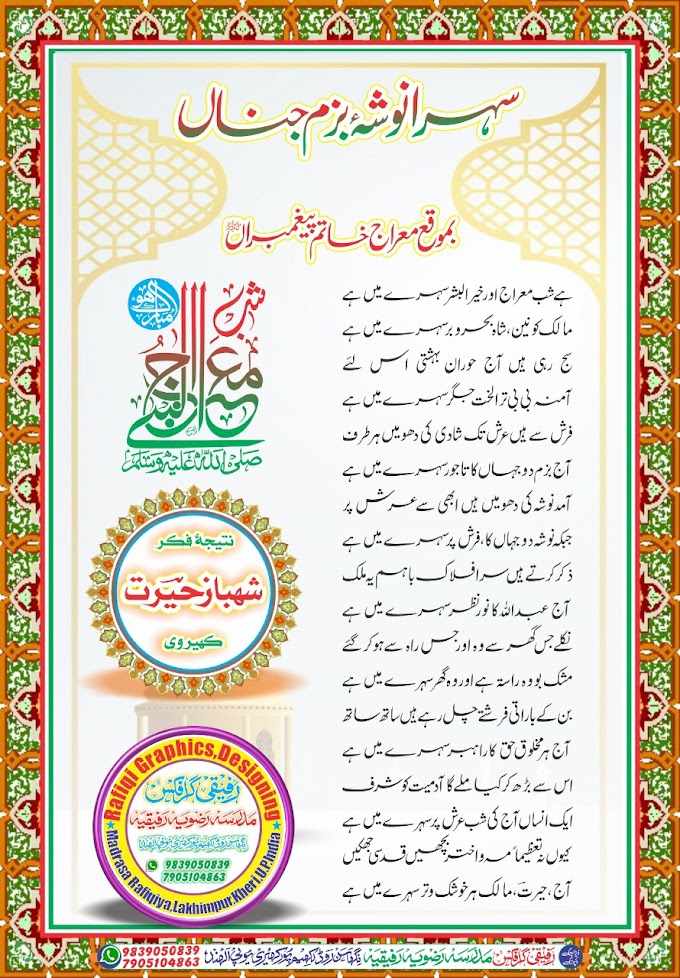 سہرا نوشۂ بزم جناں
بموقع معراج خاتم پیغمبراں ﷺ
ہے شب معراج اور خیر البشر سہرے میں ہے
مالک کونین، شاہ بحر و بر سہرے میں ہے
سج رہی ہیں آج حوران بہشتی اس لئے
آمنہ بی بی ترا لخت جگر سہرے میں ہے
فرش سے ہیں عرش تک شادی کی دھومیں ہر طرف
آج بزم دو جہاں کا تاجور سہرے میں ہے
آمد نوشہ کی دھومیں ہیں ابھی سے عرش پر
جبکہ نوشہ دو جہاں کا، فرش پر سہرے میں ہے
ذکر کرتے ہیں سر افلاک باہم یہ ملک
آج عبد اللہ کا نور نظر سہرے میں ہے
نکلے جس گھر سے وہ اور جس راہ سے ہو کر گئے
مشک بو وہ راستہ ہے اور وہ گھر سہرے میں ہے
بن کے باراتی فرشتے چل رہے ہیں ساتھ ساتھ
آج ہر مخلوق حق کا راہبر سہرے میں ہے
اس سے بڑھ کر کیا ملے گا آدمیت کو شرف
ایک انساں آج کی شب عرش پر سہرے میں ہے
کیوں نہ تعظیماً مہ و اختر بچھیں قدسی جھکیں
آج، حیرتؔ، مالک ہر خشک و تر سہرے میں ہے
مبارک ہو
شب
معراج النبی
صلی اللہ علیہ وسلم
نتیجۂ فکر
شهباز حیرت
کھیروی
Rafiqi Graphics,Designing
رفیقی گرافکس
مدرسہ رضویہ رفیقیہ
9839050839
7905104863
Madrasa Rafiqiya,Lakhimpur,Kheri,U.P.India
رفیقی گرافکس مدرسہ رضویہ رفیقیہ
9839050839
7905104863